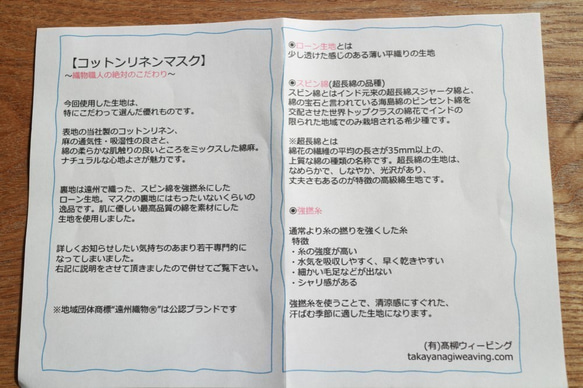 【コットンリネンマスク】
～織物職人の絶対のこだわり～
今回使用した生地は、
特にこだわって選んだ優れものです。
表地の当社製のコットンリネン、
麻の通気性・吸湿性の良さと、
綿の柔らかな肌触りの良いところをミックスした綿麻。
ナチュラルな心地よさが魅力です。
裏地は遠州で織った、スピン綿を強撚糸にした
ローン生地。マスクの裏地にはもったいないくらいの
逸品です。肌に優しい最高品質の綿を素材にした
生地を使用しました。
詳しくお知らせしたい気持ちのあまり若干専門的に
なってしまいました。
右記に説明をさせて頂きましたので併せてご覧下さい。
※地域団体商標"遠州織物®"は公認ブランドです
◉ローン生地とは
少し透けた感じのある薄い平織りの生地
◉スピン綿(超長綿の品種)
スピン綿とはインド元来の超長綿スジャータ綿と、
綿の宝石と言われている海島綿のビンセント綿を
交配させた世界トップクラスの綿花でインドの
限られた地域でのみ栽培される希少種です。
※超長綿とは
綿花の繊維の平均の長さが35mm以上の、
上質な綿の種類の名称です。超長綿の生地は、
なめらかで、しなやか、光沢があり、
丈夫さもあるのが特徴の高級綿生地です。
◉強撚糸
通常より糸の撚りを強くした糸
特徴
・糸の強度が高い
・水気を吸収しやすく、早く乾きやすい
・細かい毛足などが出ない
・シャリ感がある
強撚糸を使うことで、清涼感にすぐれた、
汗ばむ季節に適した生地になります。
(有)高柳ウィービング
takayanagiweaving.com